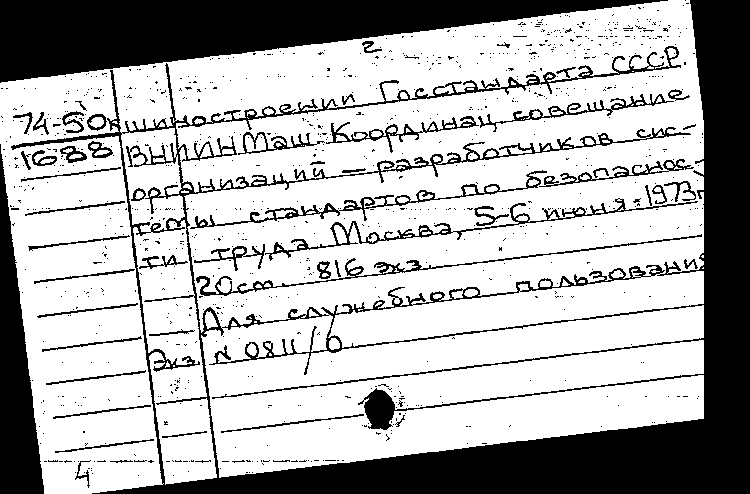 2
74-50к шиностроении Госстандарта СССР.
1688 ВНИИНМаш. Координац. совещание
организаций — разработчиков сис-
темы стандартов по безопаснос-
ти труда. Москва, 5-6 июня 1973г
20см. 816 экз.
Для служебного пользования
Экз. № 0811/б
4